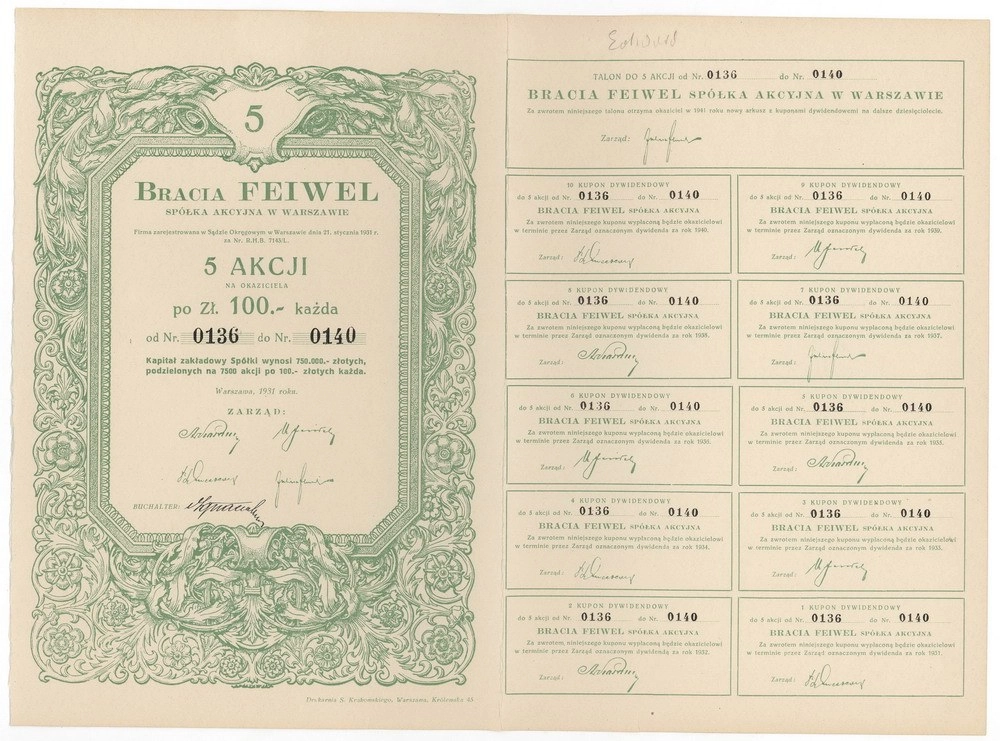 5
BRACIA FEIWEL
SPÓŁKA AKCYJNA W WARSZAWIE
Firma zarejestrowana w Sądzie Okręgowym w Warszawie dnia 21. stycznia 1931 r.
za Nr. R.H.B.
5 AKCJI
NA OKAZICIELA
po Zł. 100.- każda
od Nr. 0136 do Nr. 0140
Kapitał zakładowy Spółki wynosi 750.000.- złotych,
podzielonych na 7500 akcji po 100.- złotych każda.
Warszawa, 1931 roku.
ZARZĄD:
BUCHALTER:
Drukarnia S. Krakowskiego, Warszawa, Królewska 43
TALON DO 5 AKCJI od Nr. 0136 do Nr. 0140
BRACIA FEIWEL SPÓŁKA AKCYJNA W WARSZAWIE
Za zwrotem niniejszego talonu otrzyma okaziciel w 1941 roku nowy arkusz z kuponami dywidendowemi na dalsze dziesięciolecie.
Zarząd:
10 KUPON DYWIDENDOWY
do 5 akcji od Nr. 0136 do Nr. 0140
BRACIA FEIWEL SPÓŁKA AKCYJNA
Za zwrotem niniejszego kuponu wypłaconą będzie okazicielowi
w terminie przez Zarząd oznaczonym dywidenda za rok 1940.
Zarząd:
9 KUPON DYWIDENDOWY
do 5 akcji od Nr. 0136 do Nr. 0140
BRACIA FEIWEL SPÓŁKA AKCYJNA
Za zwrotem niniejszego kuponu wypłaconą będzie okazicielowi
w terminie przez Zarząd oznaczonym dywidenda za rok 1939.
Zarząd:
8 KUPON DYWIDENDOWY
do 5 akcji od Nr. 0136 do Nr. 0140
BRACIA FEIWEL SPÓŁKA AKCYJNA
Za zwrotem niniejszego kuponu wypłaconą będzie okazicielowi
w terminie przez Zarząd oznaczonym dywidenda za rok 1938.
Zarząd:
7 KUPON DYWIDENDOWY
do 5 akcji od Nr. 0136 do Nr. 0140
BRACIA FEIWEL SPÓŁKA AKCYJNA
Za zwrotem niniejszego kuponu wypłaconą będzie okazicielowi
w terminie przez Zarząd oznaczonym dywidenda za rok 1937.
Zarząd:
6 KUPON DYWIDENDOWY
do 5 akcji od Nr. 0136 do Nr. 0140
BRACIA FEIWEL SPÓŁKA AKCYJNA
Za zwrotem niniejszego kuponu wypłaconą będzie okazicielowi
w terminie przez Zarząd oznaczonym dywidenda za rok 1936.
Zarząd:
5 KUPON DYWIDENDOWY
do 5 akcji od Nr. 0136 do Nr. 0140
BRACIA FEIWEL SPÓŁKA AKCYJNA
Za zwrotem niniejszego kuponu wypłaconą będzie okazicielowi
w terminie przez Zarząd oznaczonym dywidenda za rok 1935.
Zarząd:
4 KUPON DYWIDENDOWY
do 5 akcji od Nr. 0136 do Nr. 0140
BRACIA FEIWEL SPÓŁKA AKCYJNA
Za zwrotem niniejszego kuponu wypłaconą będzie okazicielowi
w terminie przez Zarząd oznaczonym dywidenda za rok 1934.
Zarząd:
3 KUPON DYWIDENDOWY
do 5 akcji od Nr. 0136 do Nr. 0140
BRACIA FEIWEL SPÓŁKA AKCYJNA
Za zwrotem niniejszego kuponu wypłaconą będzie okazicielowi
w terminie przez Zarząd oznaczonym dywidenda za rok 1933.
Zarząd:
2 KUPON DYWIDENDOWY
do 5 akcji od Nr. 0136 do Nr. 0140
BRACIA FEIWEL SPÓŁKA AKCYJNA
Za zwrotem niniejszego kuponu wypłaconą będzie okazicielowi
w terminie przez Zarząd oznaczonym dywidenda za rok 1932.
Zarząd:
1 KUPON DYWIDENDOWY
do 5 akcji od Nr. 0136 do Nr. 0140
BRACIA FEIWEL SPÓŁKA AKCYJNA
Za zwrotem niniejszego kuponu wypłaconą będzie okazicielowi
w terminie przez Zarząd oznaczonym dywidenda za rok 1931.
Zarząd: